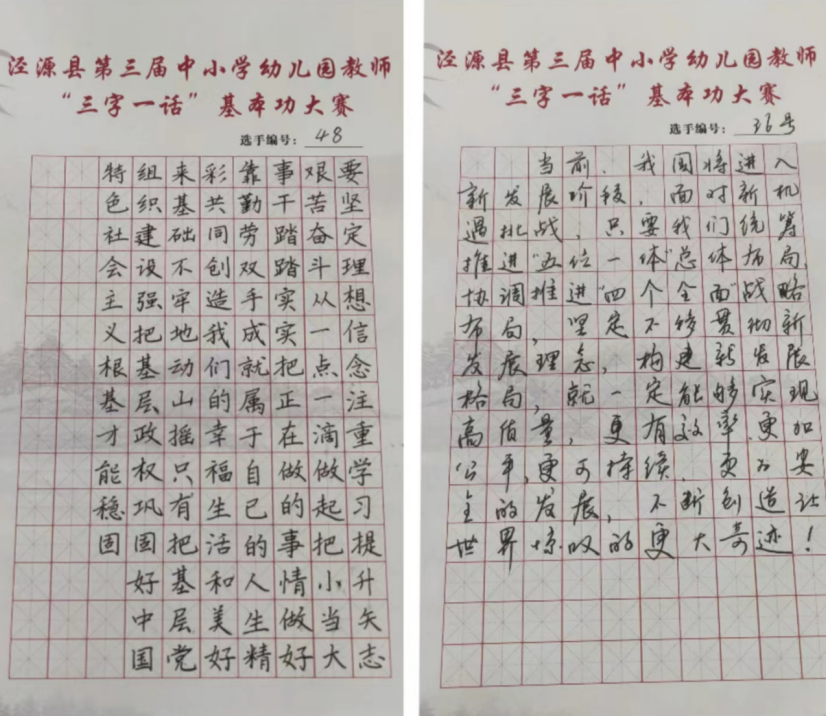 泾源县第三届中小学幼儿园教师
“三字一话”基本功大赛
选手编号：48
要坚定理想信念注重学习提升矢志
艰苦奋斗从一点一滴做起把小当大
事干踏踏实实把正在做的事情做好
靠勤劳双手成就属于自己的人生精
彩共同创造我们的幸福生活和美好
来基础不牢地动山摇只有把基层党
组织建设强把基层政权巩固好中国
特色社会主义根基才能稳固
泾源县第三届中小学幼儿园教师
“三字一话”基本功大赛
选手编号：36号
当前，我国将进入
新发展阶段，面对新机
遇挑战，只要我们统筹
推进“五位一体”总体布局，
协调推进“四个全面”战略
布局，坚定不移贯彻新
发展理念，构建新发展
格局，就一定能够实现
高质量，更有效率，更加
公平，更可持续，更为安
全的发展，不断创造让
世界惊叹的更大奇迹！